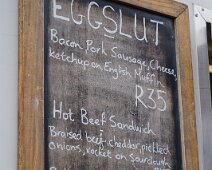 EGGSLUT
Bacon Pork Sausage, Cheese,
ketchup on English Muffin
R35
Hot Beef Sandwich
Braised beef, cheddar, pickled
onions, rocket on sourdough